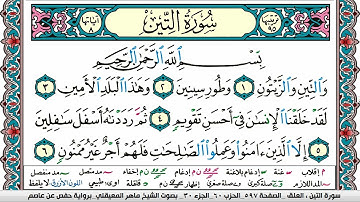 ترتيبها ٩٥ سُورَةُ التِّينِ آياتها ٨
بِسْمِ اللَّهِ الرَّحْمَٰنِ الرَّحِيمِ
وَالتِّينِ وَالزَّيْتُونِ ١ وَطُورِ سِينِينَ ٢ وَهَٰذَا الْبَلَدِ الْأَمِينِ ٣
لَقَدْ خَلَقْنَا الْإِنسَانَ فِي أَحْسَنِ تَقْوِيمٍ ٤ ثُمَّ رَدَدْنَاهُ أَسْفَلَ سَافِلِينَ
٥ إِلَّا الَّذِينَ آمَنُوا وَعَمِلُوا الصَّالِحَاتِ فَلَهُمْ أَجْرٌ غَيْرُ مَمْنُونٍ ٦
سورة التين ، العلق . الصفحة ٥٩٧ . الحزب ٦٠ . الجزء ٣٠ . بصوت الشيخ ماهر المعيقلي . برواية حفص عن عاصم